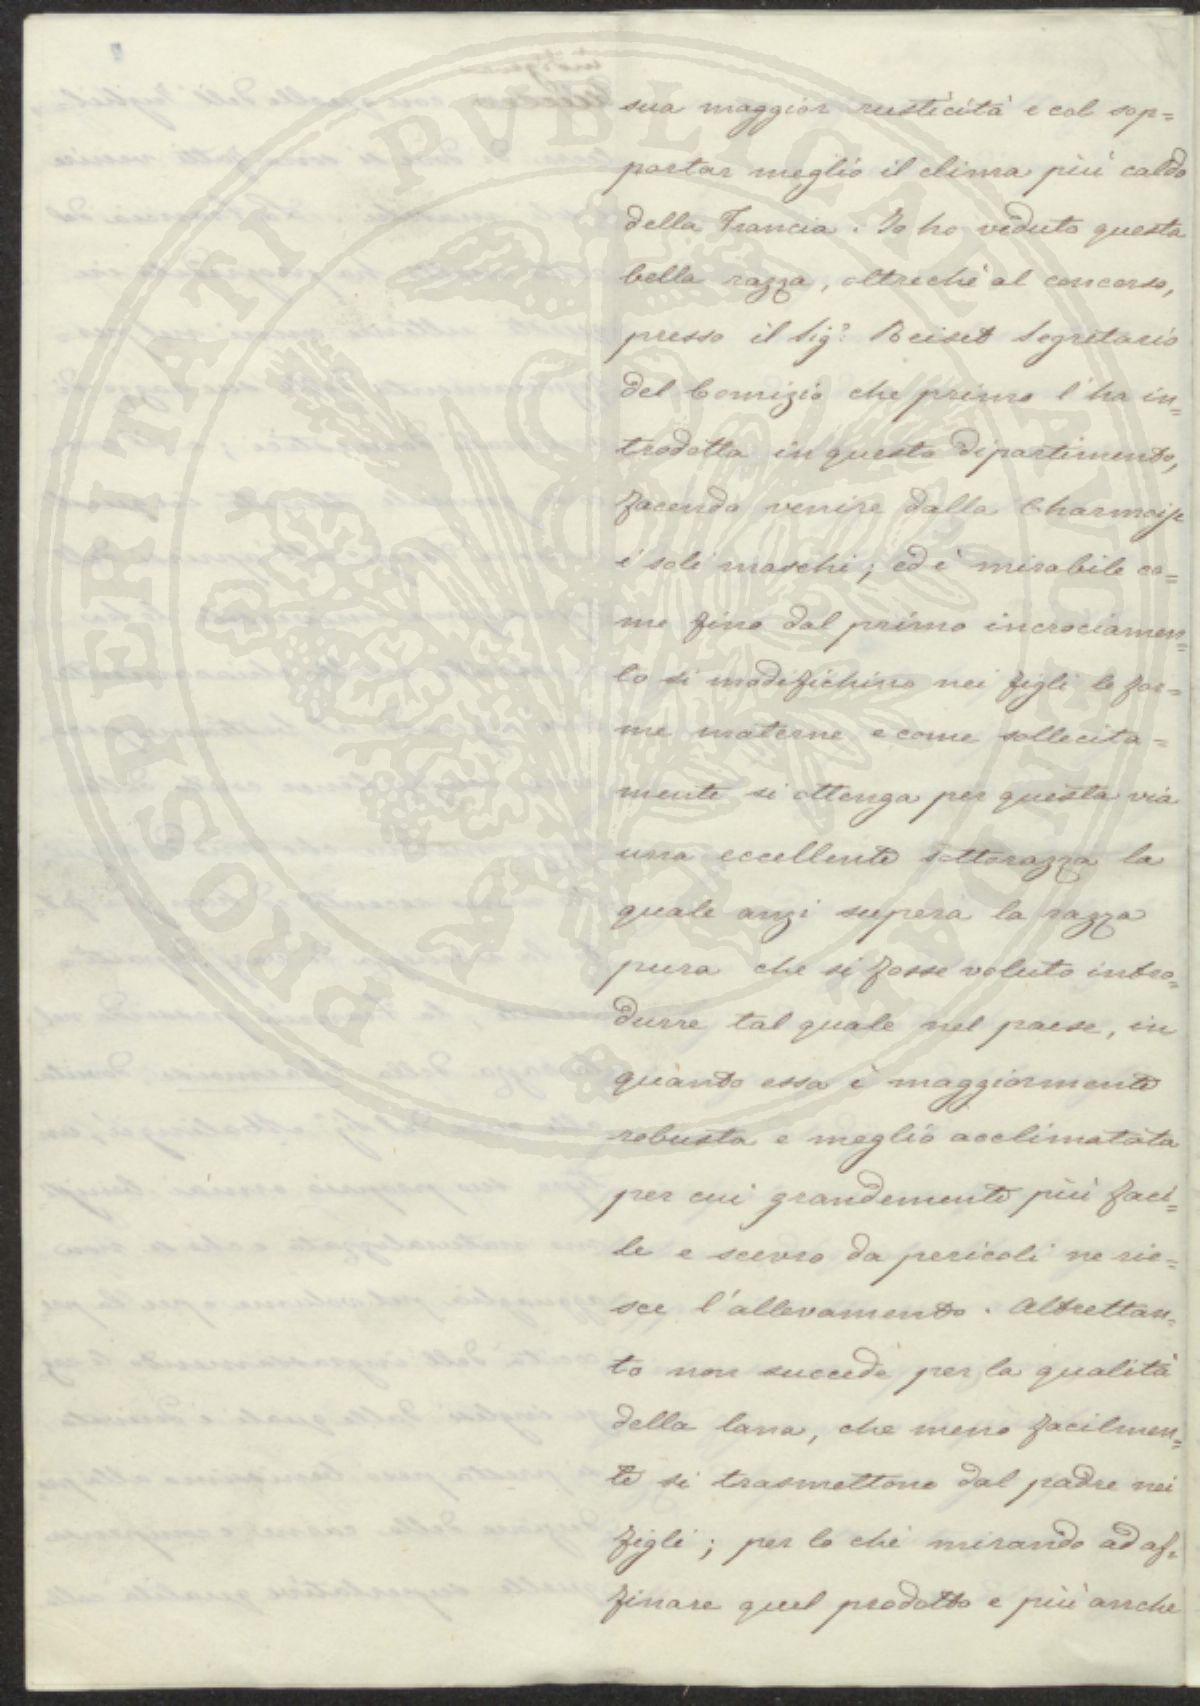 PROSPERITATI PVBLICAE AVGENDAE
sua maggior rusticità e col sop=
portar meglio il clima più caldo
della Francia. Io ho veduto questa
bella razza, oltreché al concorso,
presso il Sig.r Reiset Segretario
del Comizio che primo l'ha in=
trodotta in questo dipartimento,
facendo venire dalla Charmoise
i soli maschi; ed è mirabile co=
me fino dal primo incrociamen=
to si modifichino nei figli le for=
me materne e come sollecita=
mente si ottenga per questa via
una eccellente sottorazza la
quale anzi supera la razza
pura che si fosse voluto intro=
durre tal quale nel paese, in
quanto essa è maggiormente
robusta e meglio acclimatata
per cui grandemente più faci=
le e scevro da pericoli ne rie=
sce l'allevamento. Altrettan=
to non succede per la qualità
della lana, che meno facilmen=
te si trasmettono dal padre nei
figli; per lo che mirando ad af=
finare quel prodotto e più anche